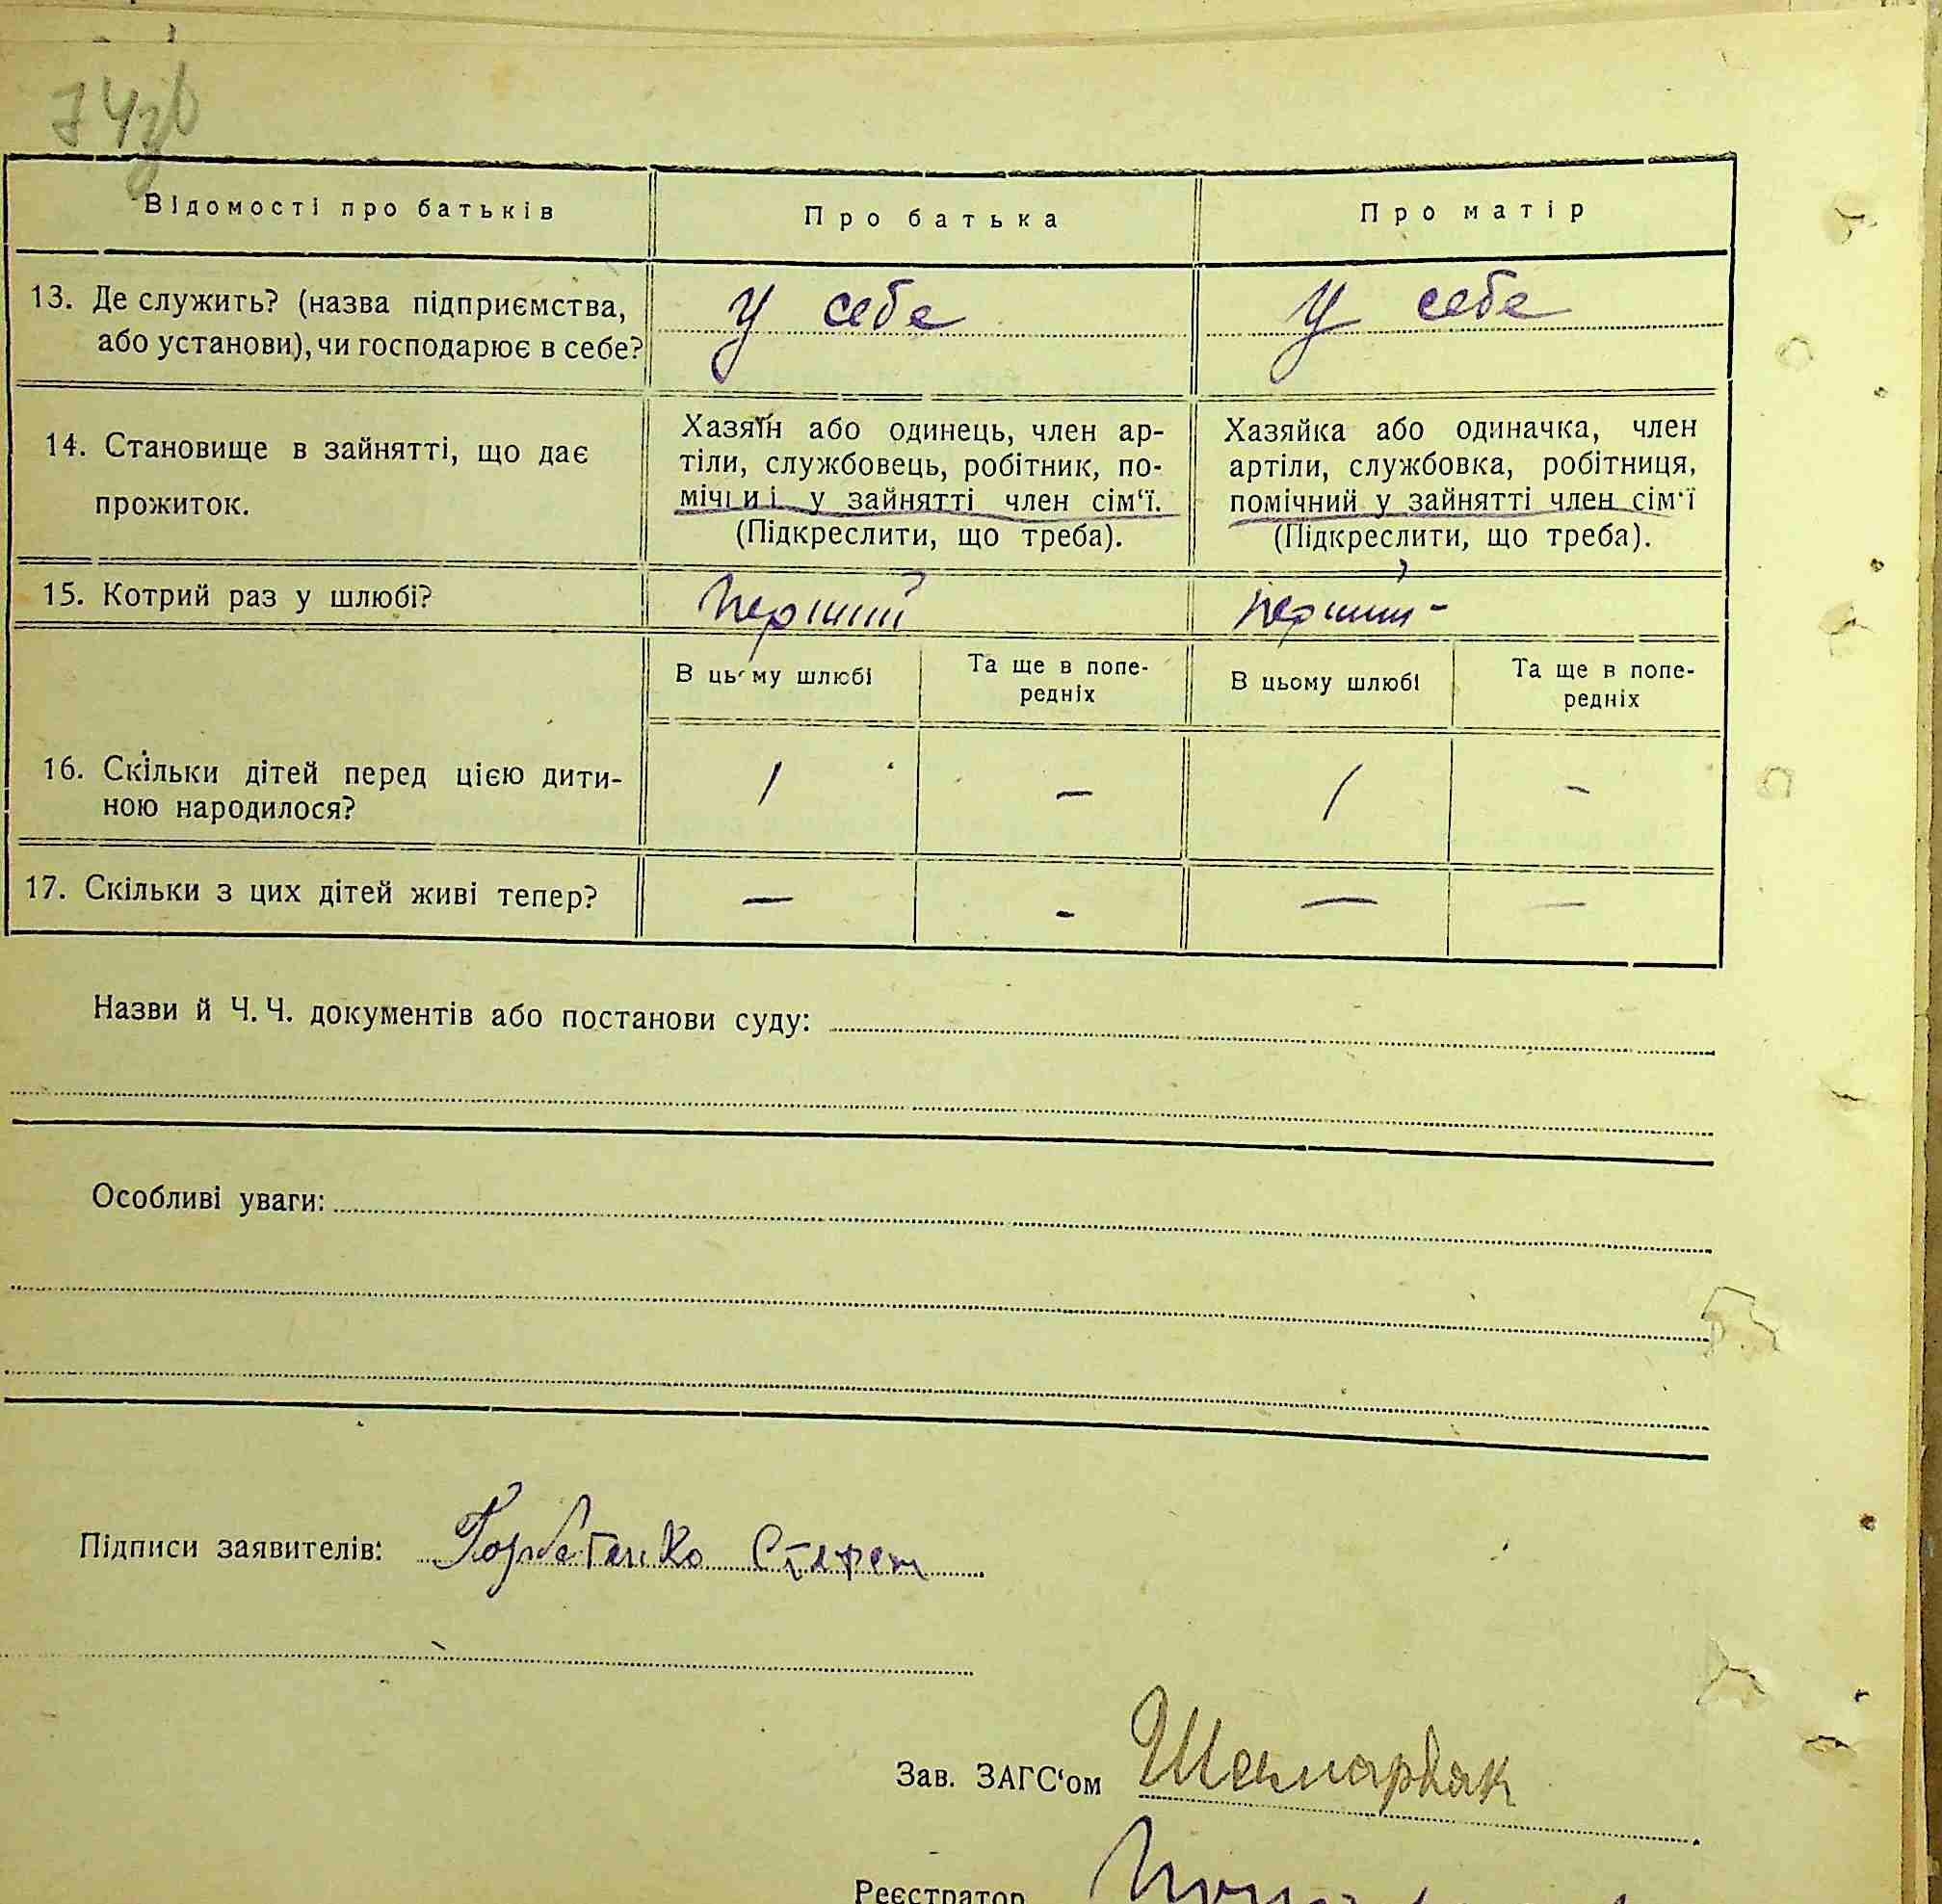 74зв
Відомості про батьків
Про батька
Про матір
13. Де служить? (назва підприємства,
або установи), чи господарює в себе?
У себе
У себе
14. Становище в зайнятті, що дає
прожиток.
Хазяїн або одинець, член ар-
тіли, службовець, робітник, по-
мічний у зайнятті член сім'ї.
(Підкреслити, що треба).
Хазяйка або одиначка, член
артіли, службовка, робітниця,
помічний у зайнятті член сім'ї
(Підкреслити, що треба).
15. Котрий раз у шлюбі?
перший
перший -
В цьому шлюбі
Та ще в попе-
редніх
В цьому шлюбі
Та ще в попе-
редніх
16. Скільки дітей перед цією дити-
ною народилося?
1
—
1
-
17. Скільки з цих дітей живі тепер?
—
-
—
—
Назви й Ч. Ч. документів або постанови суду:
Особливі уваги:
Підписи заявителів:
Зав. ЗАГС'ом
Реєстратор